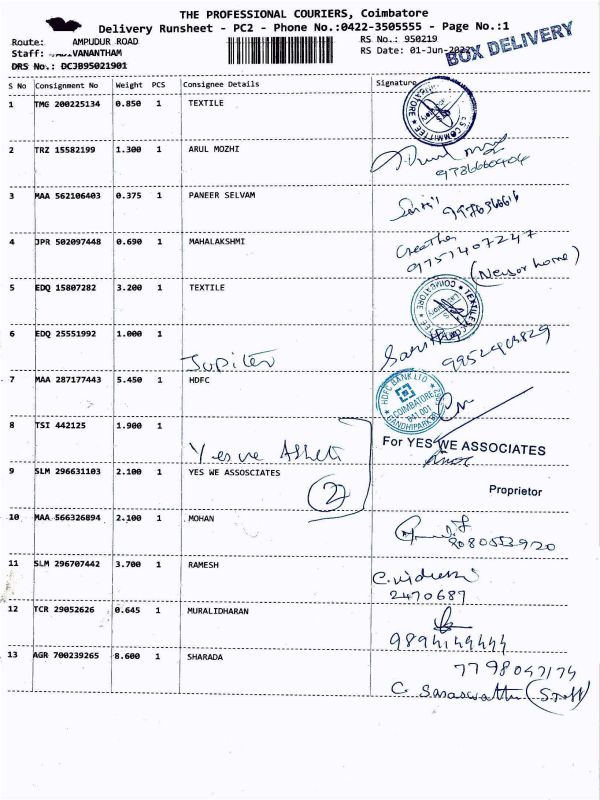 THE PROFESSIONAL COURIERS, Coimbatore
Delivery Runsheet - PC2 - Phone No.:0422-3505555 - Page No.:1
Route: AMPUDUR ROAD RS No.: 950219
Staff: VANANTHAM RS Date: 01-Jun-2022
BOX DELIVERY
DRS No.: DCJB95021901
S No Consignment No Weight PCS Consignee Details Signature
1 TMG 200225134 0.850 1 TEXTILE
2 TRZ 15582199 1.300 1 ARUL MOZHI
3 MAA 562106403 0.375 1 PANEER SELVAM
4 JPR 502097448 0.690 1 MAHALAKSHMI
9751407247
5 EDQ 15807282 3.200 1 TEXTILE
6 EDQ 25551992 1.000 1
Jupiter
7 MAA 287177443 5.450 1 HDFC
HDFC BANK LTD
COIMBATORE
641 001
GANDHIPARK
8 TSI 442125 1.900 1
Yes we
For YES WE ASSOCIATES
9 SLM 296631103 2.100 1 YES WE ASSOSCIATES
2
Proprietor
10 MAA 566326894 2.100 1 MOHAN
8080553920
11 SLM 296707442 3.700 1 RAMESH
2470687
12 TCR 29052626 0.645 1 MURALIDHARAN
13 AGR 700239265 8.600 1 SHARADA
C. Saraswathi (Staff)